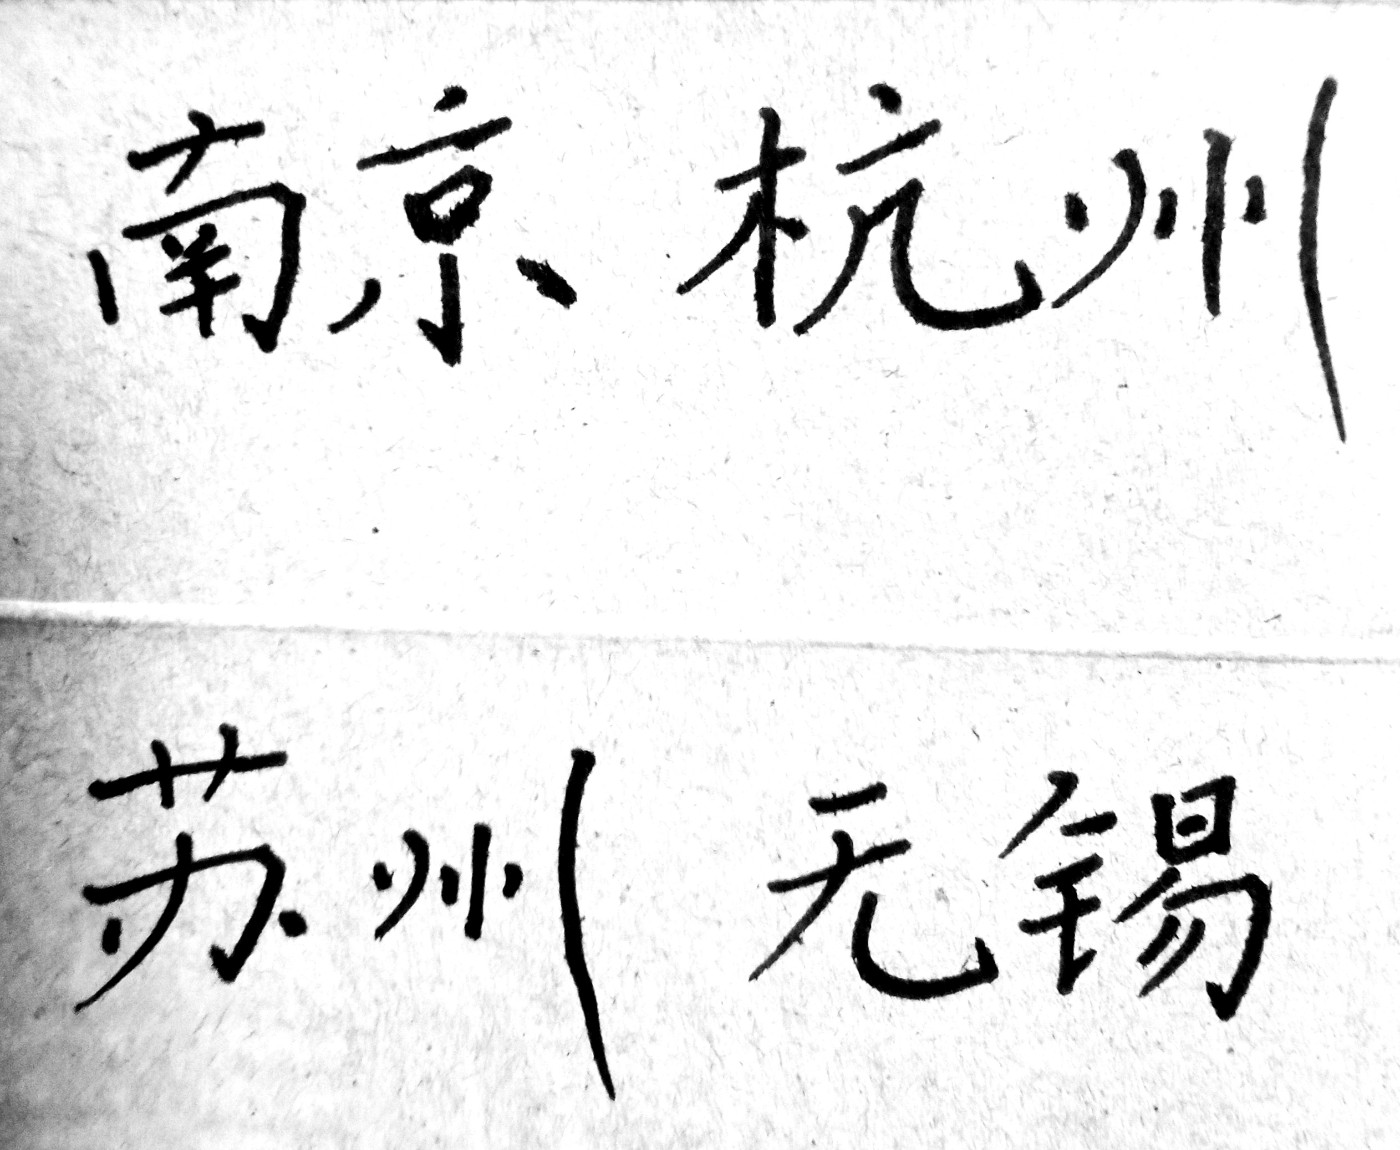 南京 杭州
苏州 无锡